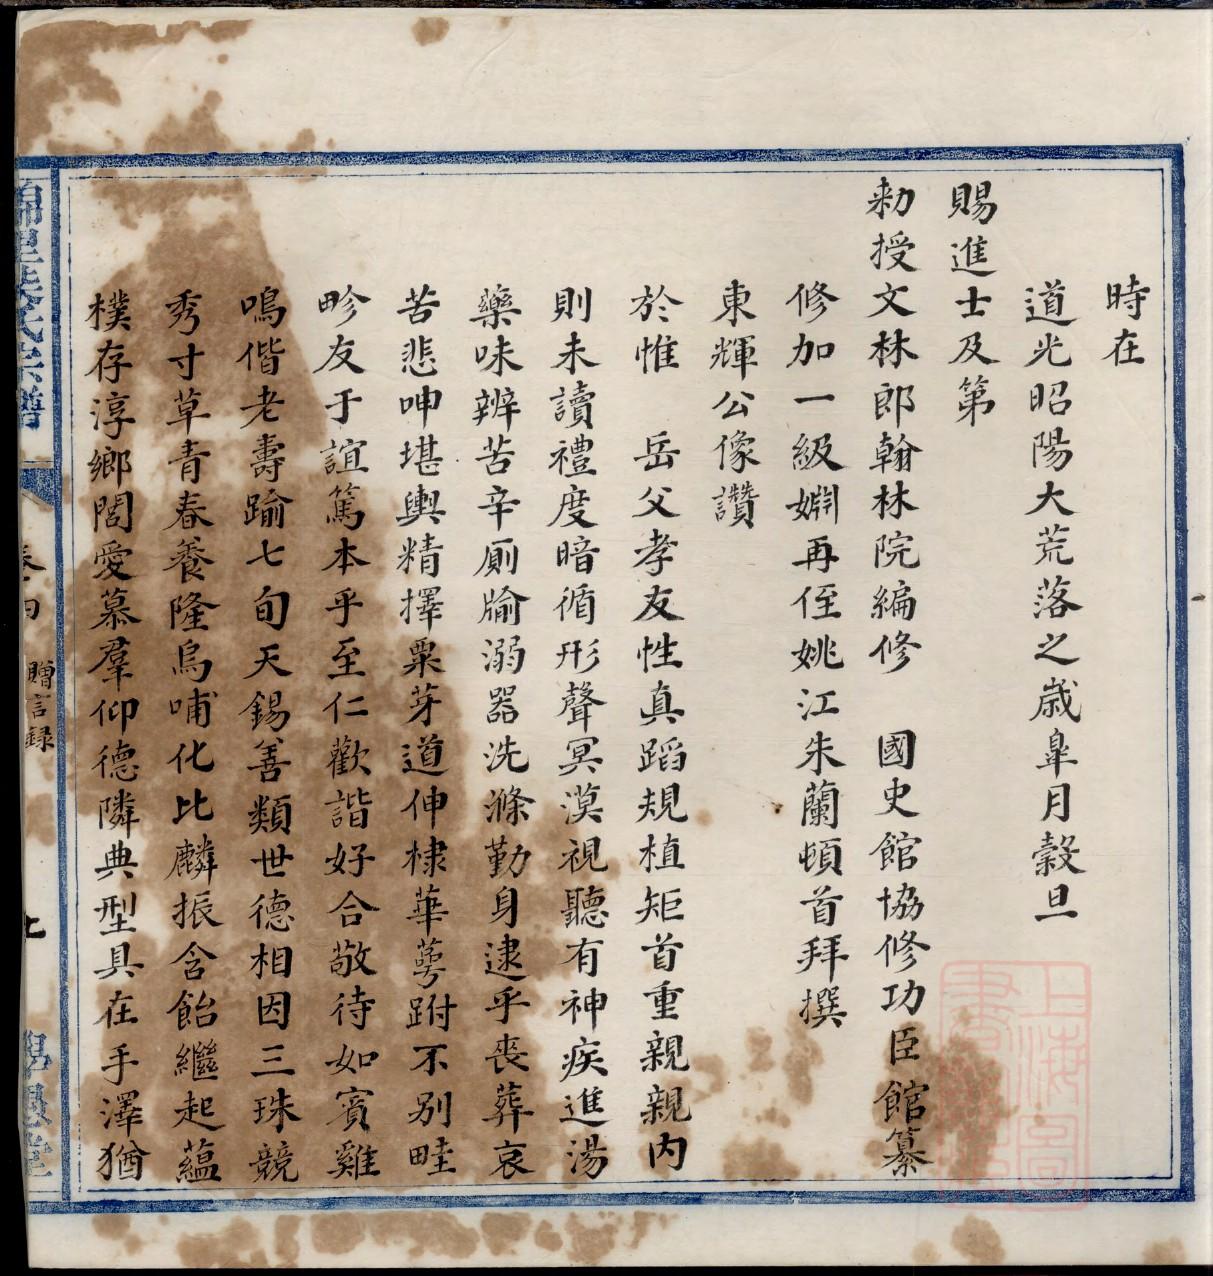 時在
道光昭陽大荒落之歲臯月穀旦
賜進士及第
勅授文林郎翰林院編修　國史館協修功臣館纂
修加一級婣再侄姚江朱蘭頓首拜撰
東輝公像讚
於惟　岳父孝友性真蹈規植矩首重親親內
則未讀禮度暗循形聲冥漠視聽有神疾進湯
藥味辨苦辛厠牏溺器洗滌勤身逮乎喪葬哀
苦悲呻堪輿精擇粟芽道伸棣華萼跗不別畦
畛友于誼篤本乎至仁歡諧好合敬待如賓雞
鳴偕老壽踰七旬天錫善類世德相因三珠競
秀寸草青春養隆烏哺化比麟振含飴繼起蘊
樸存淳鄉閭愛慕羣仰德隣典型具在手澤猶
氏宗譜
卷四
贈言錄